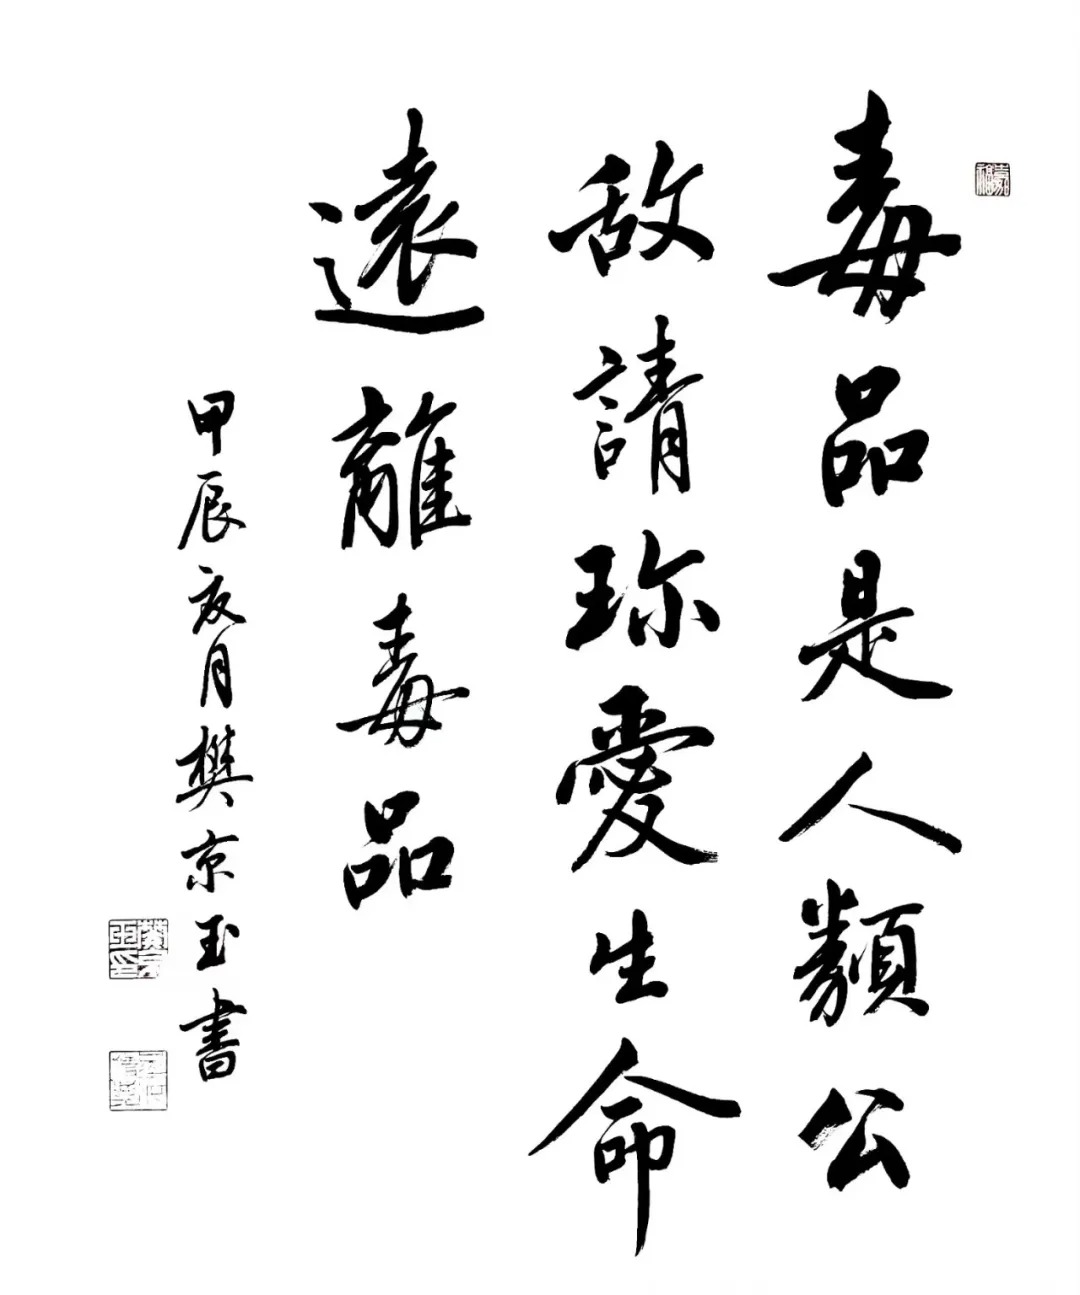 毒品是人類公
敌請珎愛生命
遠離毒品
甲辰亥月樊京玉書
樊京玉印